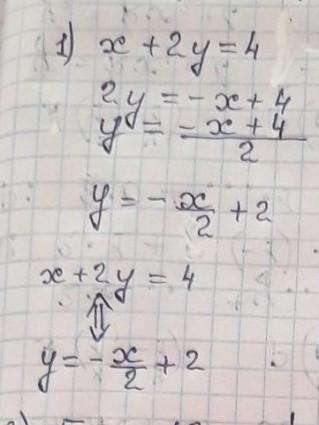 1) x + 2y = 4
2y = -x + 4
y = (-x + 4)/2
y = -x/2 + 2
x + 2y = 4
⇕
y = -x/2 + 2